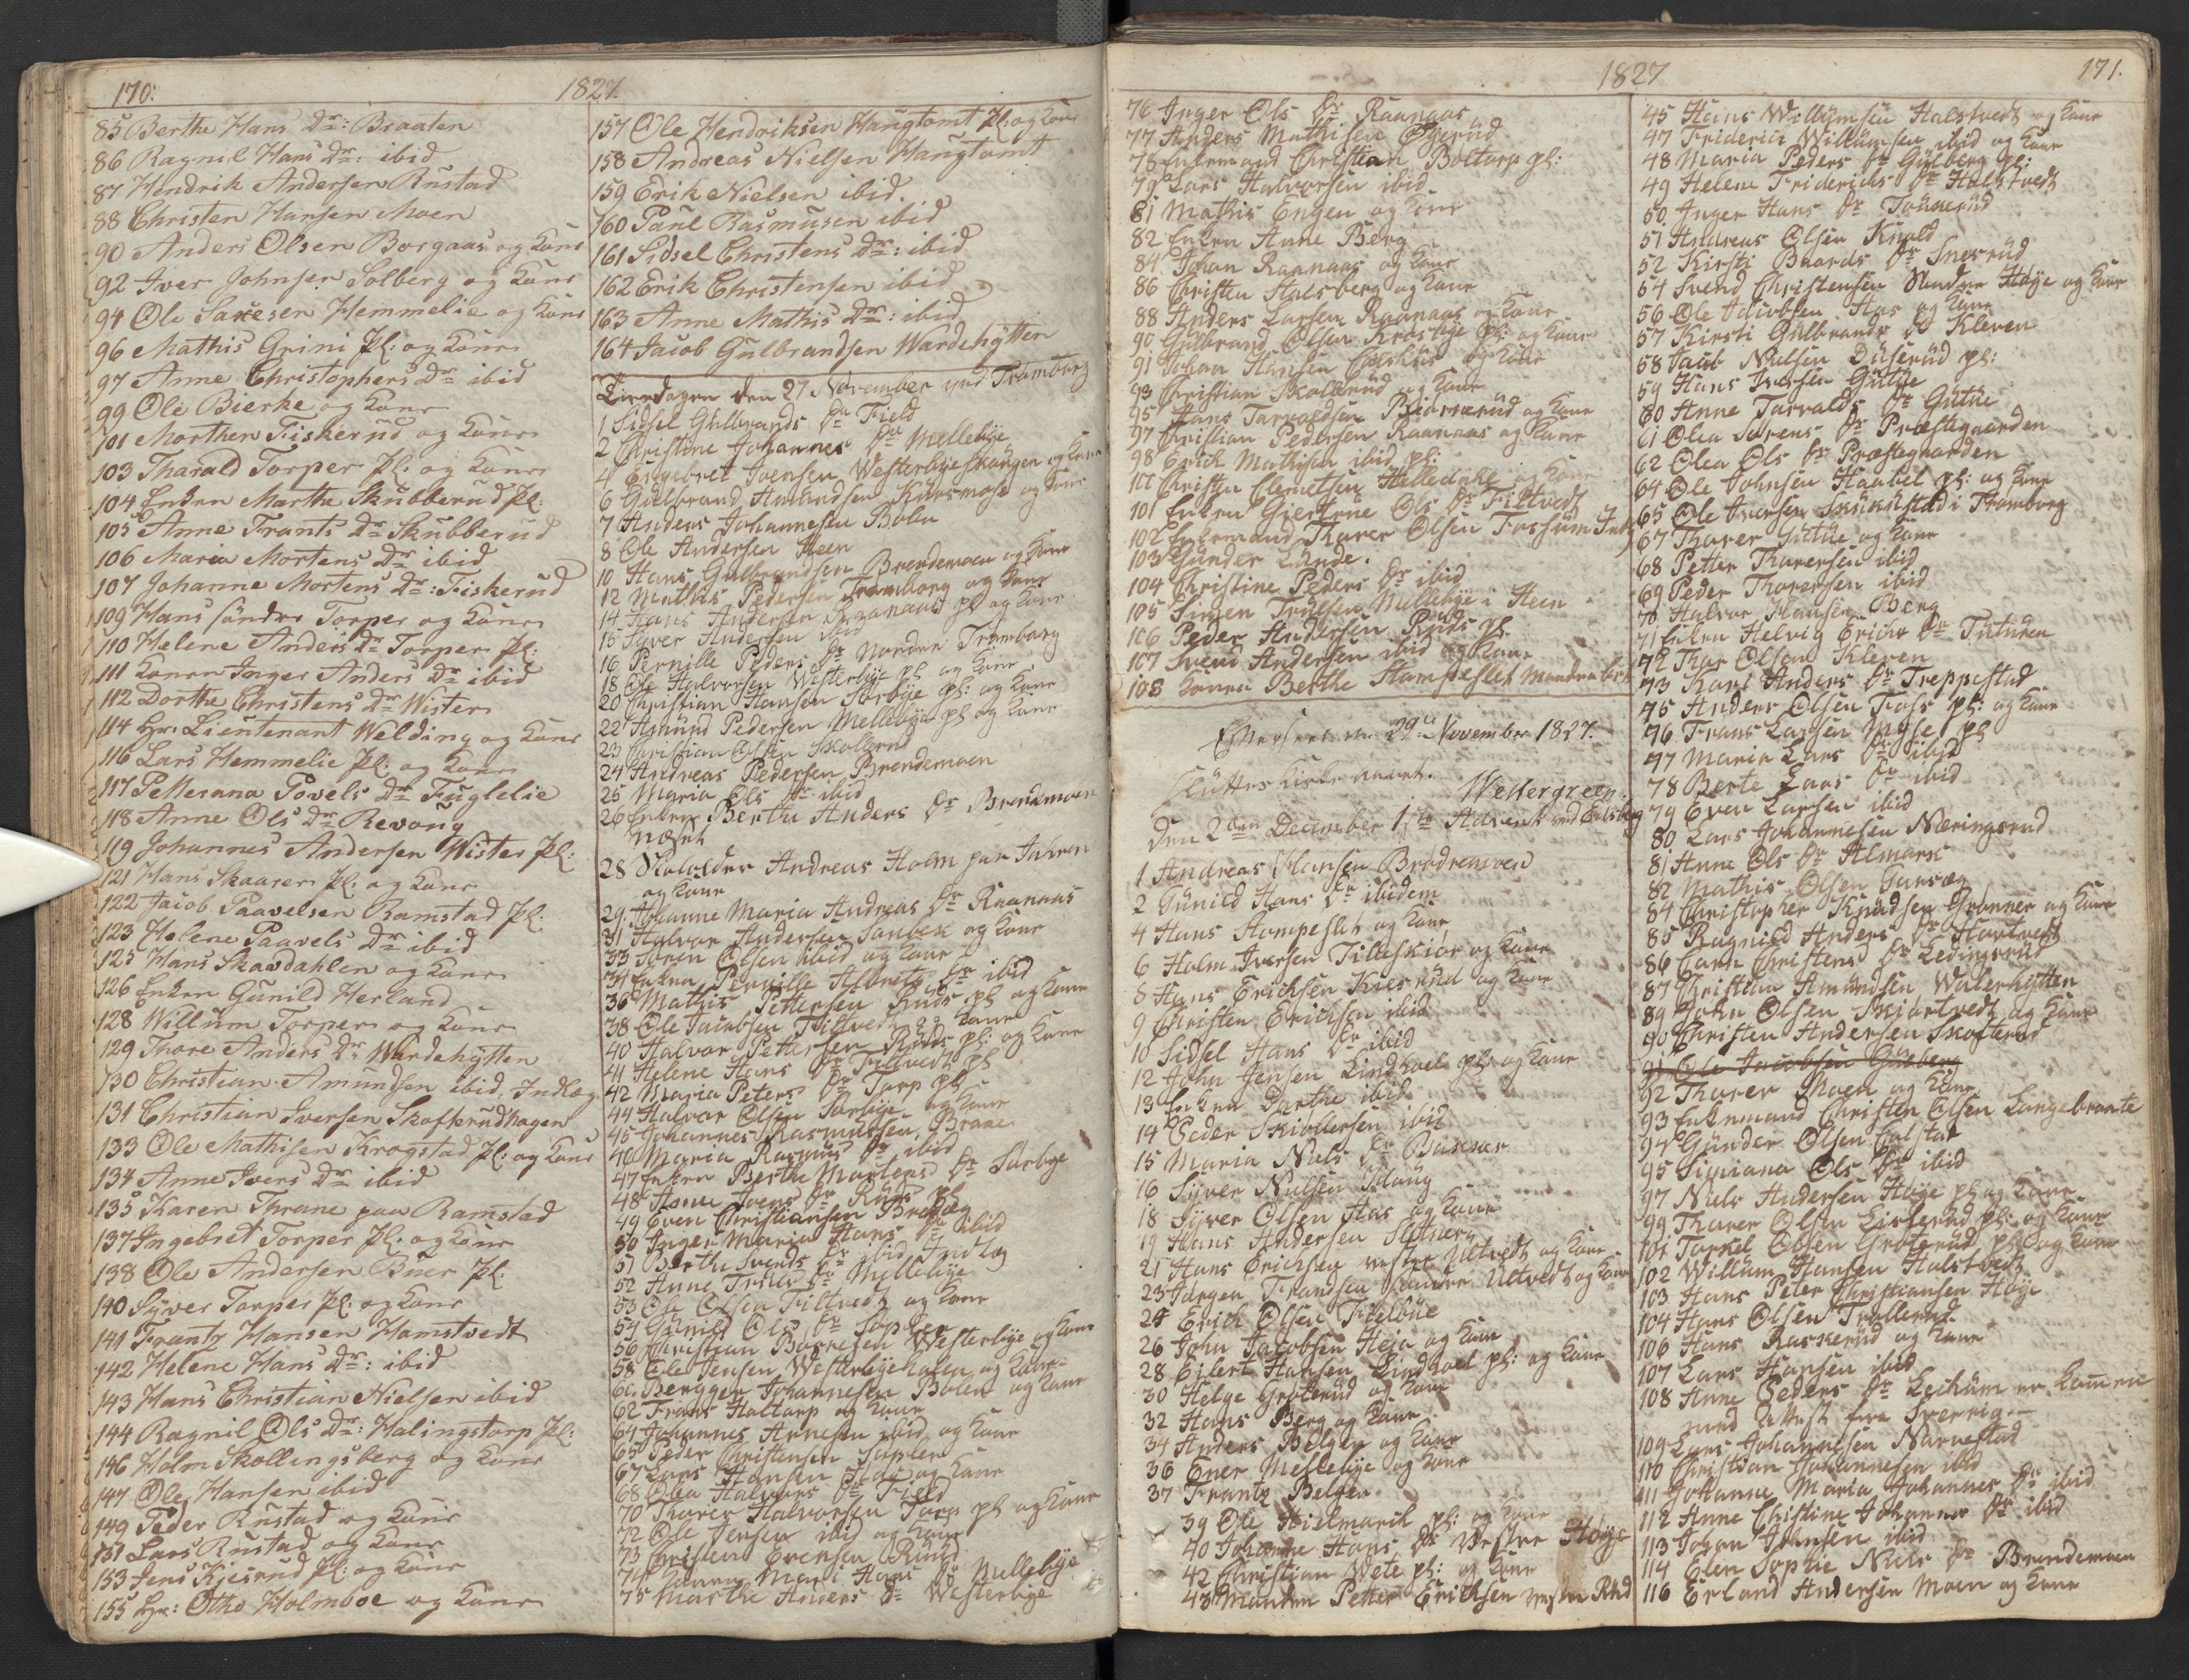 170.
1827.
85 Berthe Hans Dr: Braaten
86 Ragnil Hans Dr: ibid
87 Hendrik Andersen Rustad
88 Christen Hansen Moen
90 Anders Olsen Borgaas og Kone
92 Iver Johnsen Solberg og Kone
94 Ole Hemmelie og Kone
96 Mathis Grini Pl: og Kone
97 Anne Christophers Dr ibid
99 Ole Bierke og Kone
101 Morthen Fiskerud og Kone
103 Tharald Torper Pl: og Kone
104 Enken Marthe Skubberud Pl:
105 Anne Frants Dr Skubberud
106 Maria Mortens Dr ibid
107 Johanne Mortens Dr: Fiskerud
109 Hans søndre Torper og Kone
110 Helene Anders Dr Torper Pl:
111 Konen Inger Anders Dr ibid
112 Dorthe Christens Dr Wister
114 Hr: Lieutenant Welding og Kone
116 Lars Hemmelie Pl: og Kone
117 Petterana Povels Dr Fuglelie
118 Anne Ols Dr Revoug
119 Johannes Andersen Wister Pl:
121 Hans Skaaren Pl: og Kone
122 Jacob Paavelsen Ramstad Pl:
123 Helene Paavels Dr ibid
125 Hans Skavdahlen og Kone
126 Enken Gunild Herland
128 Willum Torper og Kone
129 Thore Anders Dr Wardehytten
130 Christian Amundsen ibid, Indlæg
131 Christian Iversen Skofterudhagen
133 Ole Mathisen Krogstad Pl: og Kone
134 Anne Ivers Dr ibid
135 Karen Thrane paa Ramstad
137 Ingebret Torper Pl: og Kone
138 Ole Andersen Buer Pl:
140 Syver Torper Pl: og Kone
141 Frantz Hansen Hamstvedt
142 Helene Hans Dr: ibid
143 Hans Christian Nielsen ibid
144 Ragnil Ols Dr: Halingstorp Pl:
146 Holm Skollingsberg og Kone
147 Ole Hansen ibid
149 Peder Rustad og Kone
151 Lars Rustad og Kone
153 Jens Kiesrud Pl: og Kone
155 Hr: Otho Holmboe og Kone
157 Ole Hendriksen Haugtomt Pl: og Kone
158 Andreas Nielsen Haugtomt
159 Erik Nielsen ibid.
160 Paul Rasmusen ibid
161 Sidsel Christens Dr: ibid
162 Erik Christensen ibid
163 Anne Mathis Dr: ibid
164 Jacob Gulbrandsen Wardehytten
Tirsdagen den 27 November ved Trømborg
1 Sidsel Gulbrands Dr Field
2 Christine Johannes Dr Mellebye
4 Engebret Ivensen Westerbyeskougen og Kone
6 Gulbrand Amundsen Kursmose og Kone
7 Anders Johannesen Bolen
8 Ole Andersen Steen
10 Hans Gulbrandsen Brendemoen og Kone
12 Mathis Pedersen Trømborg og Kone
14 Hans Andersen Raanaas pl og Kone
15 Syver Andersen ibid
16 Pernille Peders Dr Nordre Trømborg
18 Ole Halvorsen Westerbye pl og Kone
20 Christian Hansen Sorbye pl: og Kone
22 Amund Pedersen Mellebye pl og Kone
23 Christian Olsen Skollerud
24 Andreas Pedersen Brendemoen
25 Maria Ols Dr ibid
26 Enken Berthe Anders Dr Brendemoen
28 Andreas Holm paa
og Kone
29. Johanne Maria Andreas Dr Raanaas
31 Halvor Andersen Sanbek og Kone
33 Søren Olsen ibid og Kone
34 Enken Pernille Dr ibid
36 Mathis Pettersen Ruds pl og Kone
38 Ole Jacobsen Tiltvedt og Kone
40 Halvor Pettersen Ruds pl: og Kone
41 Helene Hans Dr Tiltvedt pl
42 Maria Peters Dr Torp pl
44 Halvor Olsen Sorbye og Kone
45 Johannes Rasmussen Braae
46 Maria Rasmus Dr ibid
47 Enken Berthe Mortens Dr Sorbye
48 Anne Ivers Dr Ruds pl
49 Even Christiansen
50 Inger Maria Hans Dr ibid
51 Berthe Svends Dr ibid Indlæg
52 Anne Truls Dr Mellebye
53 Ole Olsen Tiltvedt og Kone
54 Gunild Ols Dr Soplen
56 Christian Westerbye og Kone
58 Ole Jensen Westerbyeholen og Kone
60 Johannesen Bolen og Kone
62 Frans Haltorp og Kone
64 Johannes Arnesen ibid og Kone
65 Peder Christensen Soplen
67 Lars Hansen og Kone
68 Olea Halvors Dr Field
70 Thorer Halvorsen pl og Kone
72 Ole Jensen ibid og Kone
73 Christen Evensen Ruud
74 Konen Mari Hans Dr Mellebye
75 Marthe Anders Dr Westerbye
1827
171.
76 Inger Ols Dr Raanaas
77 Anders Mathisen
78 Enkemand Christian Boltorp pl:
79 Lars Halvorsen ibid
81 Mathis Engen og Kone
82 Enken Anne Berg
84 Johan Raanaas og Kone
86 Christen Halsberg og Kone
88 Anders Larsen Raanaas og Kone
90 Gulbrand Olsen Krosbye pl: og Kone
91 Johan Hansen og Kone
93 Christian Skollerud og Kone
95 Hans Torvaldsen Biørnerud og Kone
97 Christian Pedersen Raanaas og Kone
98 Erich Mathisen ibid pl:
100 Christen Clemetsen Helledahl og Kone
101 Enken Giertrue Ols Dr Tiltvedt
102 Enkemand Thorer Olsen Fossum Ind
103 Gunder Lunde.
104 Christine Peders Dr ibid
105 Jørgen Mellebye i Steen
106 Peder Andersen Ruds pl.
107 Svend Andersen ibid og Kone
108 Konen Berthe Stampeslet Manden
29de November 1827.
Wettergreen.
den 2den December 1ste Advent ved Eidsberg
1 Andreas Hansen Brødremoen
2 Gunild Hans Dr ibidem
4 Hans Stampeslet og Kone
6 Holm Iversen Tilleskiør og Kone
8 Hans Erichsen Kiesrud og Kone
9 Christen Erichsen ibid
10 Sidsel Hans Dr ibid
12 John Jensen Lindhoel pl: og Kone
13 Enken Dorthe ibid
14 Peder Skiollersen ibid
15 Maria Niels Dr
16 Syver Nielsen
18 Syver Olsen Has og Kone
19 Hans Andersen
21 Hans Erichsen vestre Ultvedt og Kone
23 Jørgen Frandsen søndre Ultvedt og Kone
24 Erich Olsen
26 John Jacobsen Heja og Kone
28 Eilert Hansen Lindhoel pl: og Kone
30 Helge Grøterud og Kone
32 Hans Berg og Kone
34 Anders Belgen og Kone
36 Ener Mellebye og Kone
37 Frantz Belgen
39 Ole Hielmark pl: og Kone
40 Johanne Hans Dr Vestre Høye
42 Christian Wete pl: og Kone
43 Manden Petter Erichsen
45 Hans Willumsen Halstvedt og Kone
47 Friderich Willumsen ibid og Kone
48 Maria Peders Dr Gulberg pl:
49 Helene Friderichs Dr Halstvedt
50 Inger Hans Dr
51 Andreas Olsen Knold
52 Kirsti Baards Dr
54 Svend Christensen Nordre Høye og Kone
56 Ole Jacobsen Has og Kone
57 Kirsti Gulbrands Dr Kleven
58 Jacob Nielsen Duserud pl:
59 Hans Iversen Guthe
60 Anne Torvalds Dr Guthe
61 Olea Sørens Dr Præstegaarden
62 Olea Ols Dr Præstegaarden
64 Ole Johnsen Haabel pl: og Kone
65 Ole Iversen i Trømborg
67 Thorer Guthe og Kone
68 Petter Thorersen ibid
69 Peder Thorersen ibid
70 Halvor Hansen Berg
71 Enken Helvig Erichs Dr
72 Thor Olsen Kleven
73 Kari Anders Dr Treppestad
75 Anders Olsen Foss pl: og Kone
76 Frans Larsen Myse pl
77 Maria Lars Dr ibid
78 Berte Lars Dr ibid
79 Even Larsen ibid
80 Lars Johannesen Næringsrud
81 Anne Ols Dr Almark
82 Mathis Olsen
84 Christopher Knudsen Grønner og Kone
85 Ragnild Anders Dr
86 Karen Christens Dr Ledingsrud
87 Christian Amundsen Walerhytten
89 John Olsen og Kone
90 Christen Andersen Skofterud
91 Ole Jacobsen
92 Thorer Moen og Kone
93 Enkemand Christen Olsen Langebraate
94 Gunder Olsen
95 Ols Dr ibid
97 Niels Andersen Høye pl og Kone
99 Thorer Olsen pl: og Kone
101 Torkel Olsen Grøterud pl: og Kone
102 Willum Hansen Halstvedt
103 Hans Peter Christiansen Høye
104 Hans Olsen Trollerud
106 Hans Raskerud og Kone
107 Lars Hansen ibid
108 Anne Peders Dr Lechum er kommen
med Attest fra Sverrig.
109 Lars Johannesen Narvestad
110 Christian Johannesen ibid
111 Johanne Maria Johannes Dr ibid
112 Anne Christine Johannes Dr ibid
113 Johan Johnsen ibid
114 Elen Sophie Niels Dr Brendemoen
116 Erland Andersen Moen og Kone